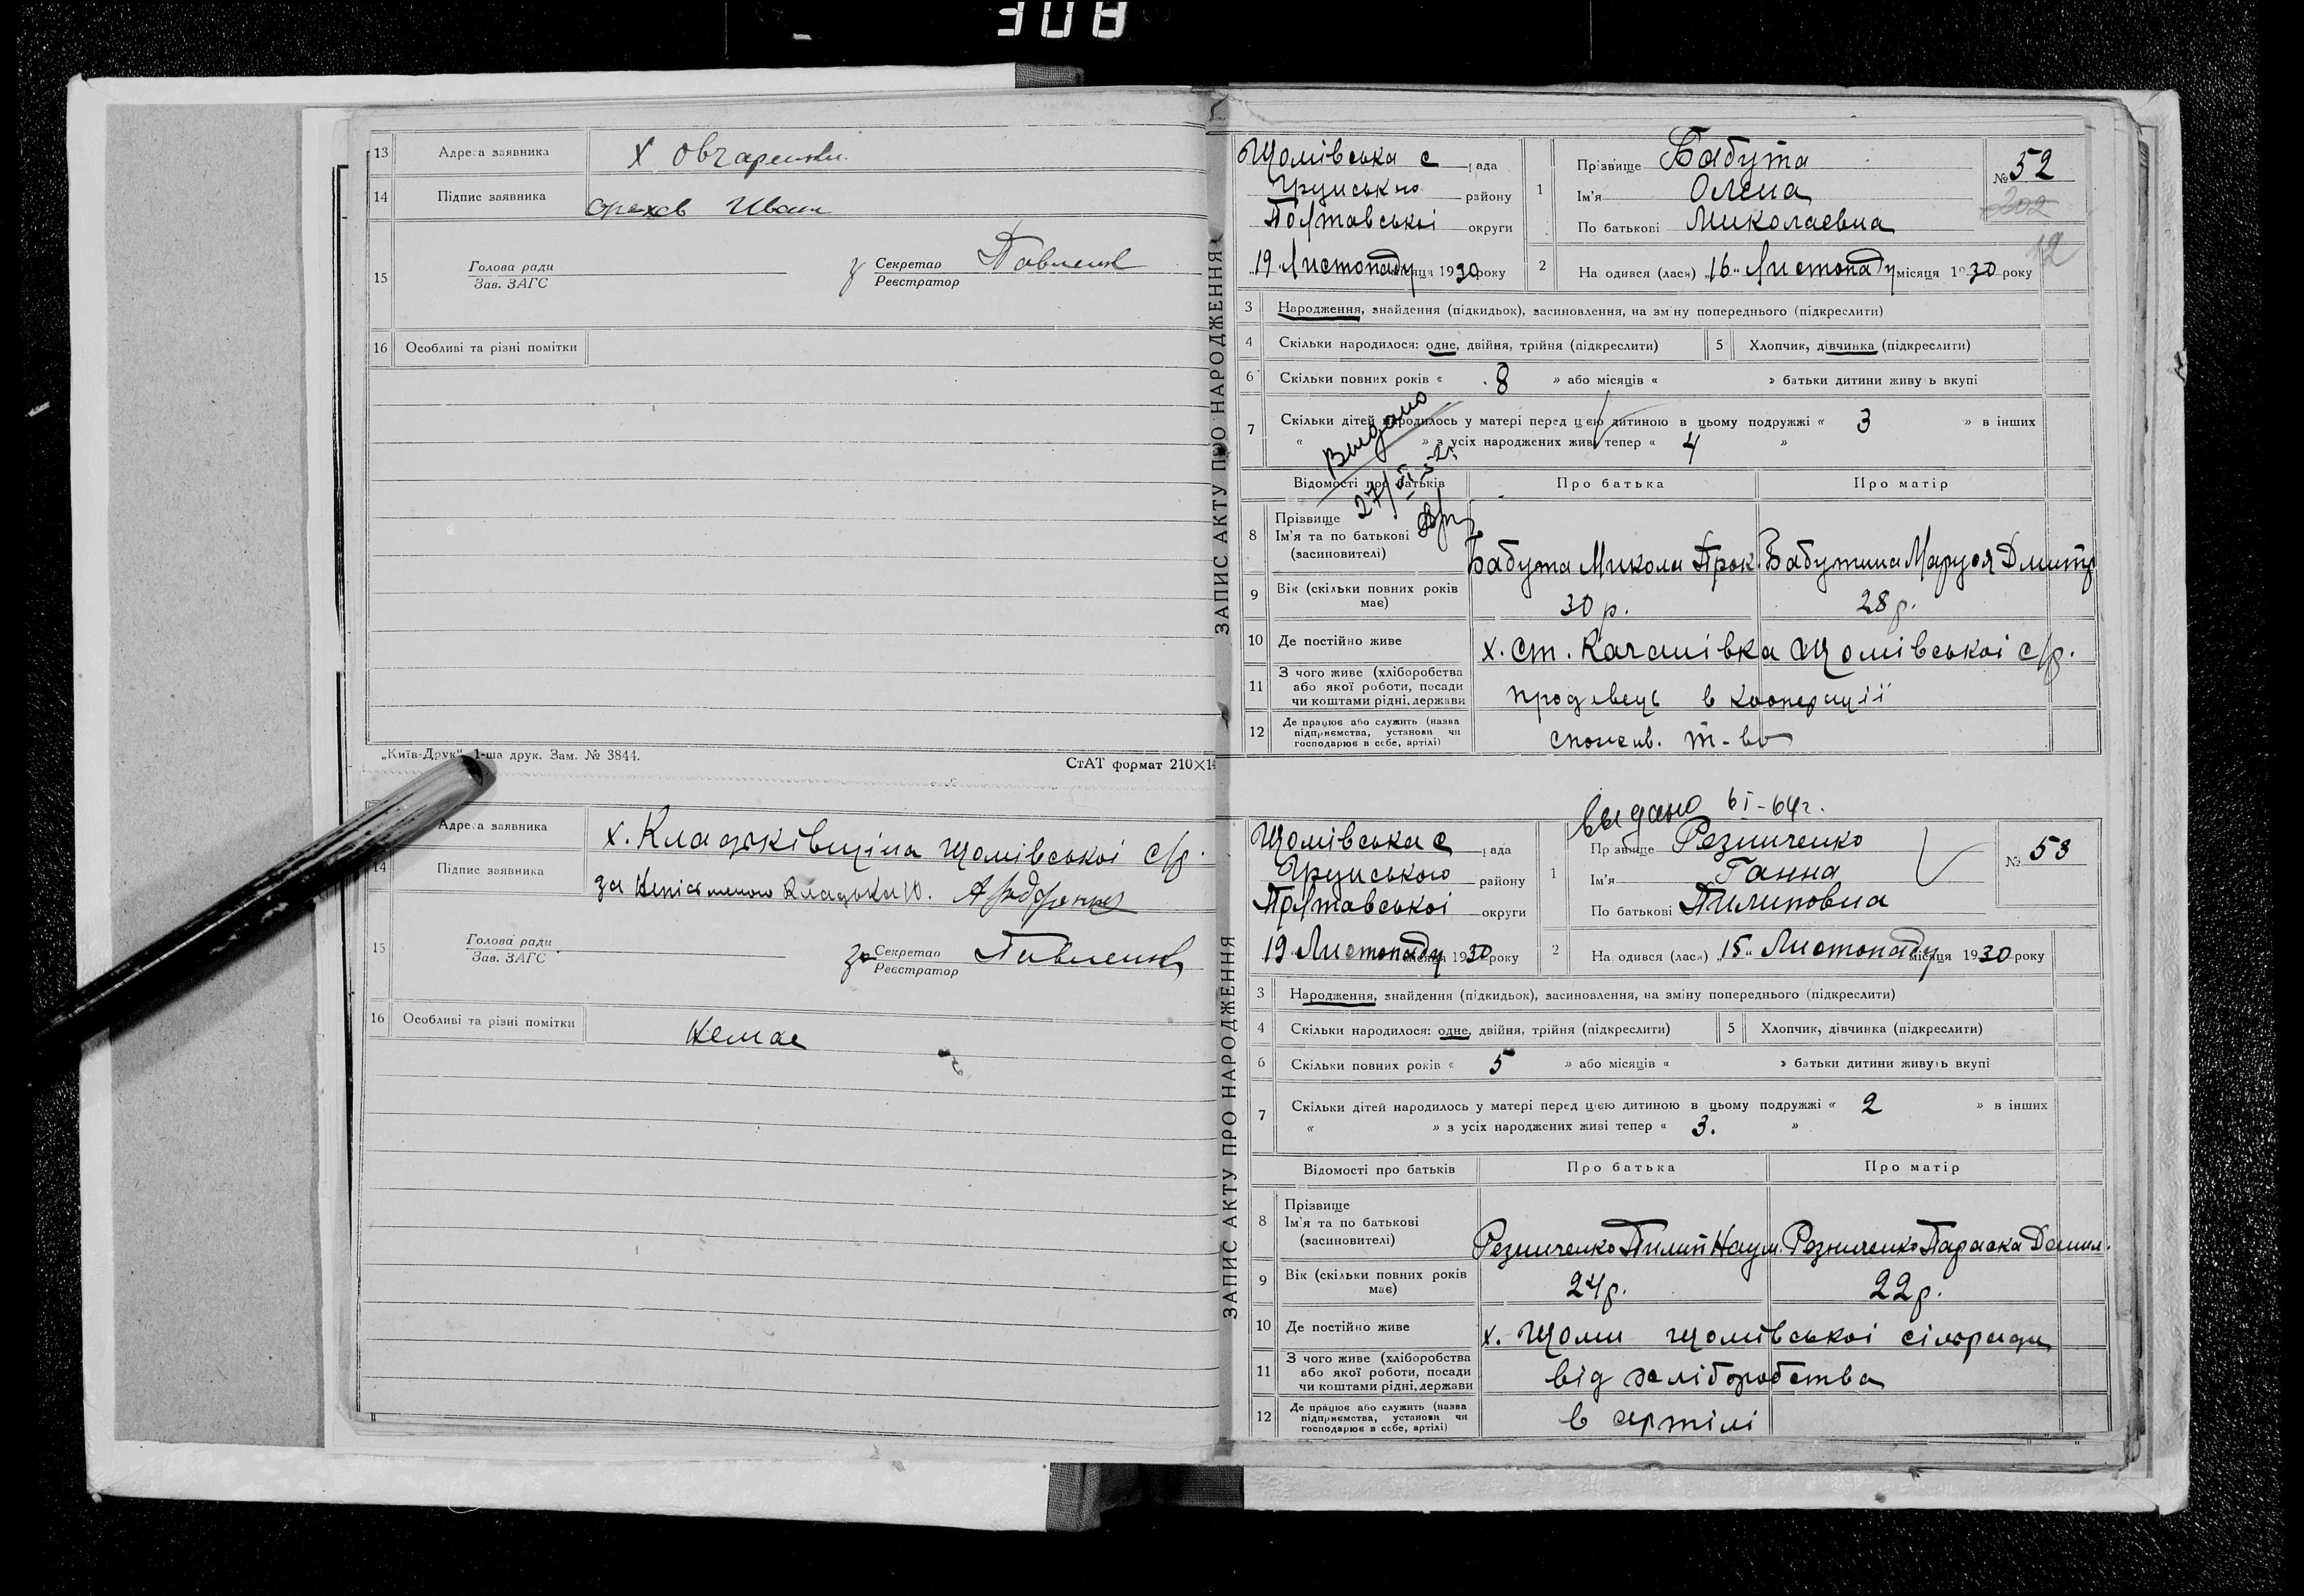 13 Адреса заявника х Овчаренки.
14 Підпис заявника Орехов Иван
15 Голова ради Зав. ЗАГС Секретар Реєстратор Павленко
16 Особливі та різні помітки
„Київ-Друк“, 1-ша друк. Зам. № 3844. СтАТ формат 210×14
Адреса заявника х. Кладьківщина Щомівської с/р.
14 Підпис заявника за Неписьменого Кладька Ю.
15 Голова ради Зав. ЗАГС за Секретар Реєстратор Павленко
16 Особливі та різні помітки Немає
ЗАПИС АКТУ ПРО НАРОДЖЕННЯ
Щомівська с рада
району
Полтавської округи
„19 Листопаду місяця 1930 року
1 Прізвище Бабута
Ім'я Олена
По батькові Миколаевна
№ 52
202
12
2 На одився (лася) „16“ Листопаду місяця 1930 року
3 Народження, знайдення (підкидьок), засиновлення, на зміну попереднього (підкреслити)
4 Скільки народилося: одне, двійня, трійня (підкреслити) 5 Хлопчик, дівчинка (підкреслити)
6 Скільки повних років « 8 » або місяців « » батьки дитини живуть вкупі
7 Скільки дітей народилось у матері перед цією дитиною в цьому подружжі « 3 » в інших
« » з усіх народжених живі тепер « 4 »
Выдано
27/
Відомості про батьків Про батька Про матір
8 Прізвище
Ім'я та по батькові
(засиновителі)
Бабута Микола Прок. Бабутина Маруся Дмитр
9 Вік (скільки повних років має) 30 р. 28 р.
10 Де постійно живе х. ст. Качанівка Щомівської с/р.
11 З чого живе (хліборобства
або якої роботи, посади
чи коштами рідні, держави
продавець в кооперації
12 Де працює або служить (назва
підприємства, установи чи
господарює в себе, артілі)
спожив. т-во
выдано 6 I-64г.
ЗАПИС АКТУ ПРО НАРОДЖЕННЯ
Щомівська с рада
району
Полтавської округи
19 Листопаду місяця 1930 року
1 Прізвище Резниченко
Ім'я Ганна
По батькові Пилиповна
№ 53
2 На одився (лася) „15“ Листопаду місяця 1930 року
3 Народження, знайдення (підкидьок), засиновлення, на зміну попереднього (підкреслити)
4 Скільки народилося: одне, двійня, трійня (підкреслити) 5 Хлопчик, дівчинка (підкреслити)
6 Скільки повних років « 5 » або місяців « » батьки дитини живуть вкупі
7 Скільки дітей народилось у матері перед цією дитиною в цьому подружжі « 2 » в інших
« » з усіх народжених живі тепер « 3. »
Відомості про батьків Про батька Про матір
8 Прізвище
Ім'я та по батькові
(засиновителі)
Резниченко Пилип Наум. Резниченко Параска Данил.
9 Вік (скільки повних років має) 24 р. 22 р.
10 Де постійно живе х. Щоми Щомівської сільради
11 З чого живе (хліборобства
або якої роботи, посади
чи коштами рідні, держави
від хліборобства
12 Де працює або служить (назва
підприємства, установи чи
господарює в себе, артілі)
в артілі